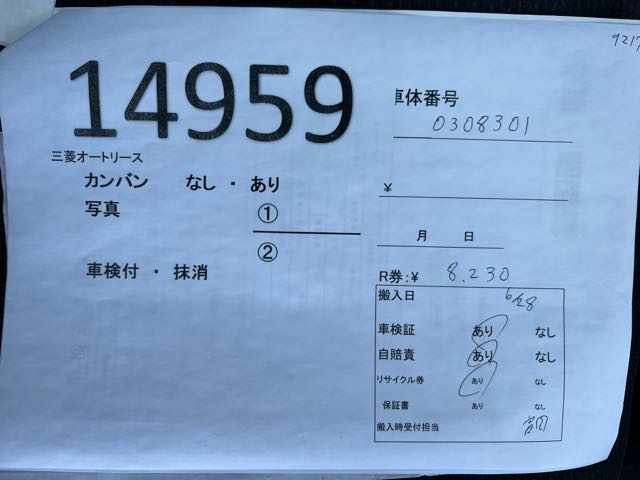 9217
14959
車体番号
0308301
三菱オートリース
カンバン なし ・ あり
¥
写真 ①
②
月 日
車検付 ・ 抹消
R券:¥ 8.230
搬入日 6/28
車検証 あり なし
自賠責 あり なし
リサイクル券 あり なし
保証書 あり なし
搬入時受付担当